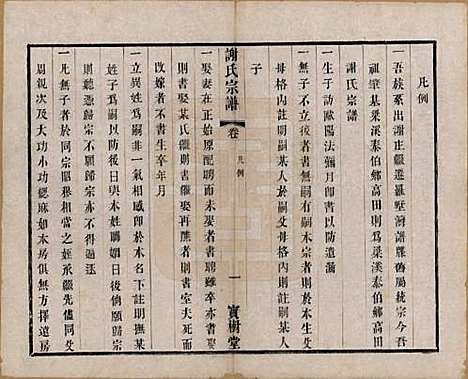 凡例
一吾族系出謝正巖遷羅墅灣譜舊屬統宗今吾
祖肇基梁溪泰伯鄉高田則爲梁溪泰伯高田
謝氏宗譜
一生子訪歐陽法彌月卽書以防遺漏
一無子不入繼者書無嗣有嗣本宗者則於本生父
母格內註明嗣某人於嗣父母格內註明嗣某人
子
謝氏宗譜
卷
凡例
一
寶樹堂
一娶妻在正始原配聘而未娶者書聘雖卒亦書娶
則書娶某氏繼則書繼娶再醮者則書室夫死而
改嫁者不書生卒年月
一立異姓爲嗣非一氣相感卽於本名下註明撫某
姓子爲嗣以防後日與本姓聯婚日後倘願歸宗
則聽憑歸宗不願歸宗亦不得過泛
一凡無子者於同宗昭穆相當之姪承繼先儘同
周親次及大功小功緦麻如本房俱無方擇遠房